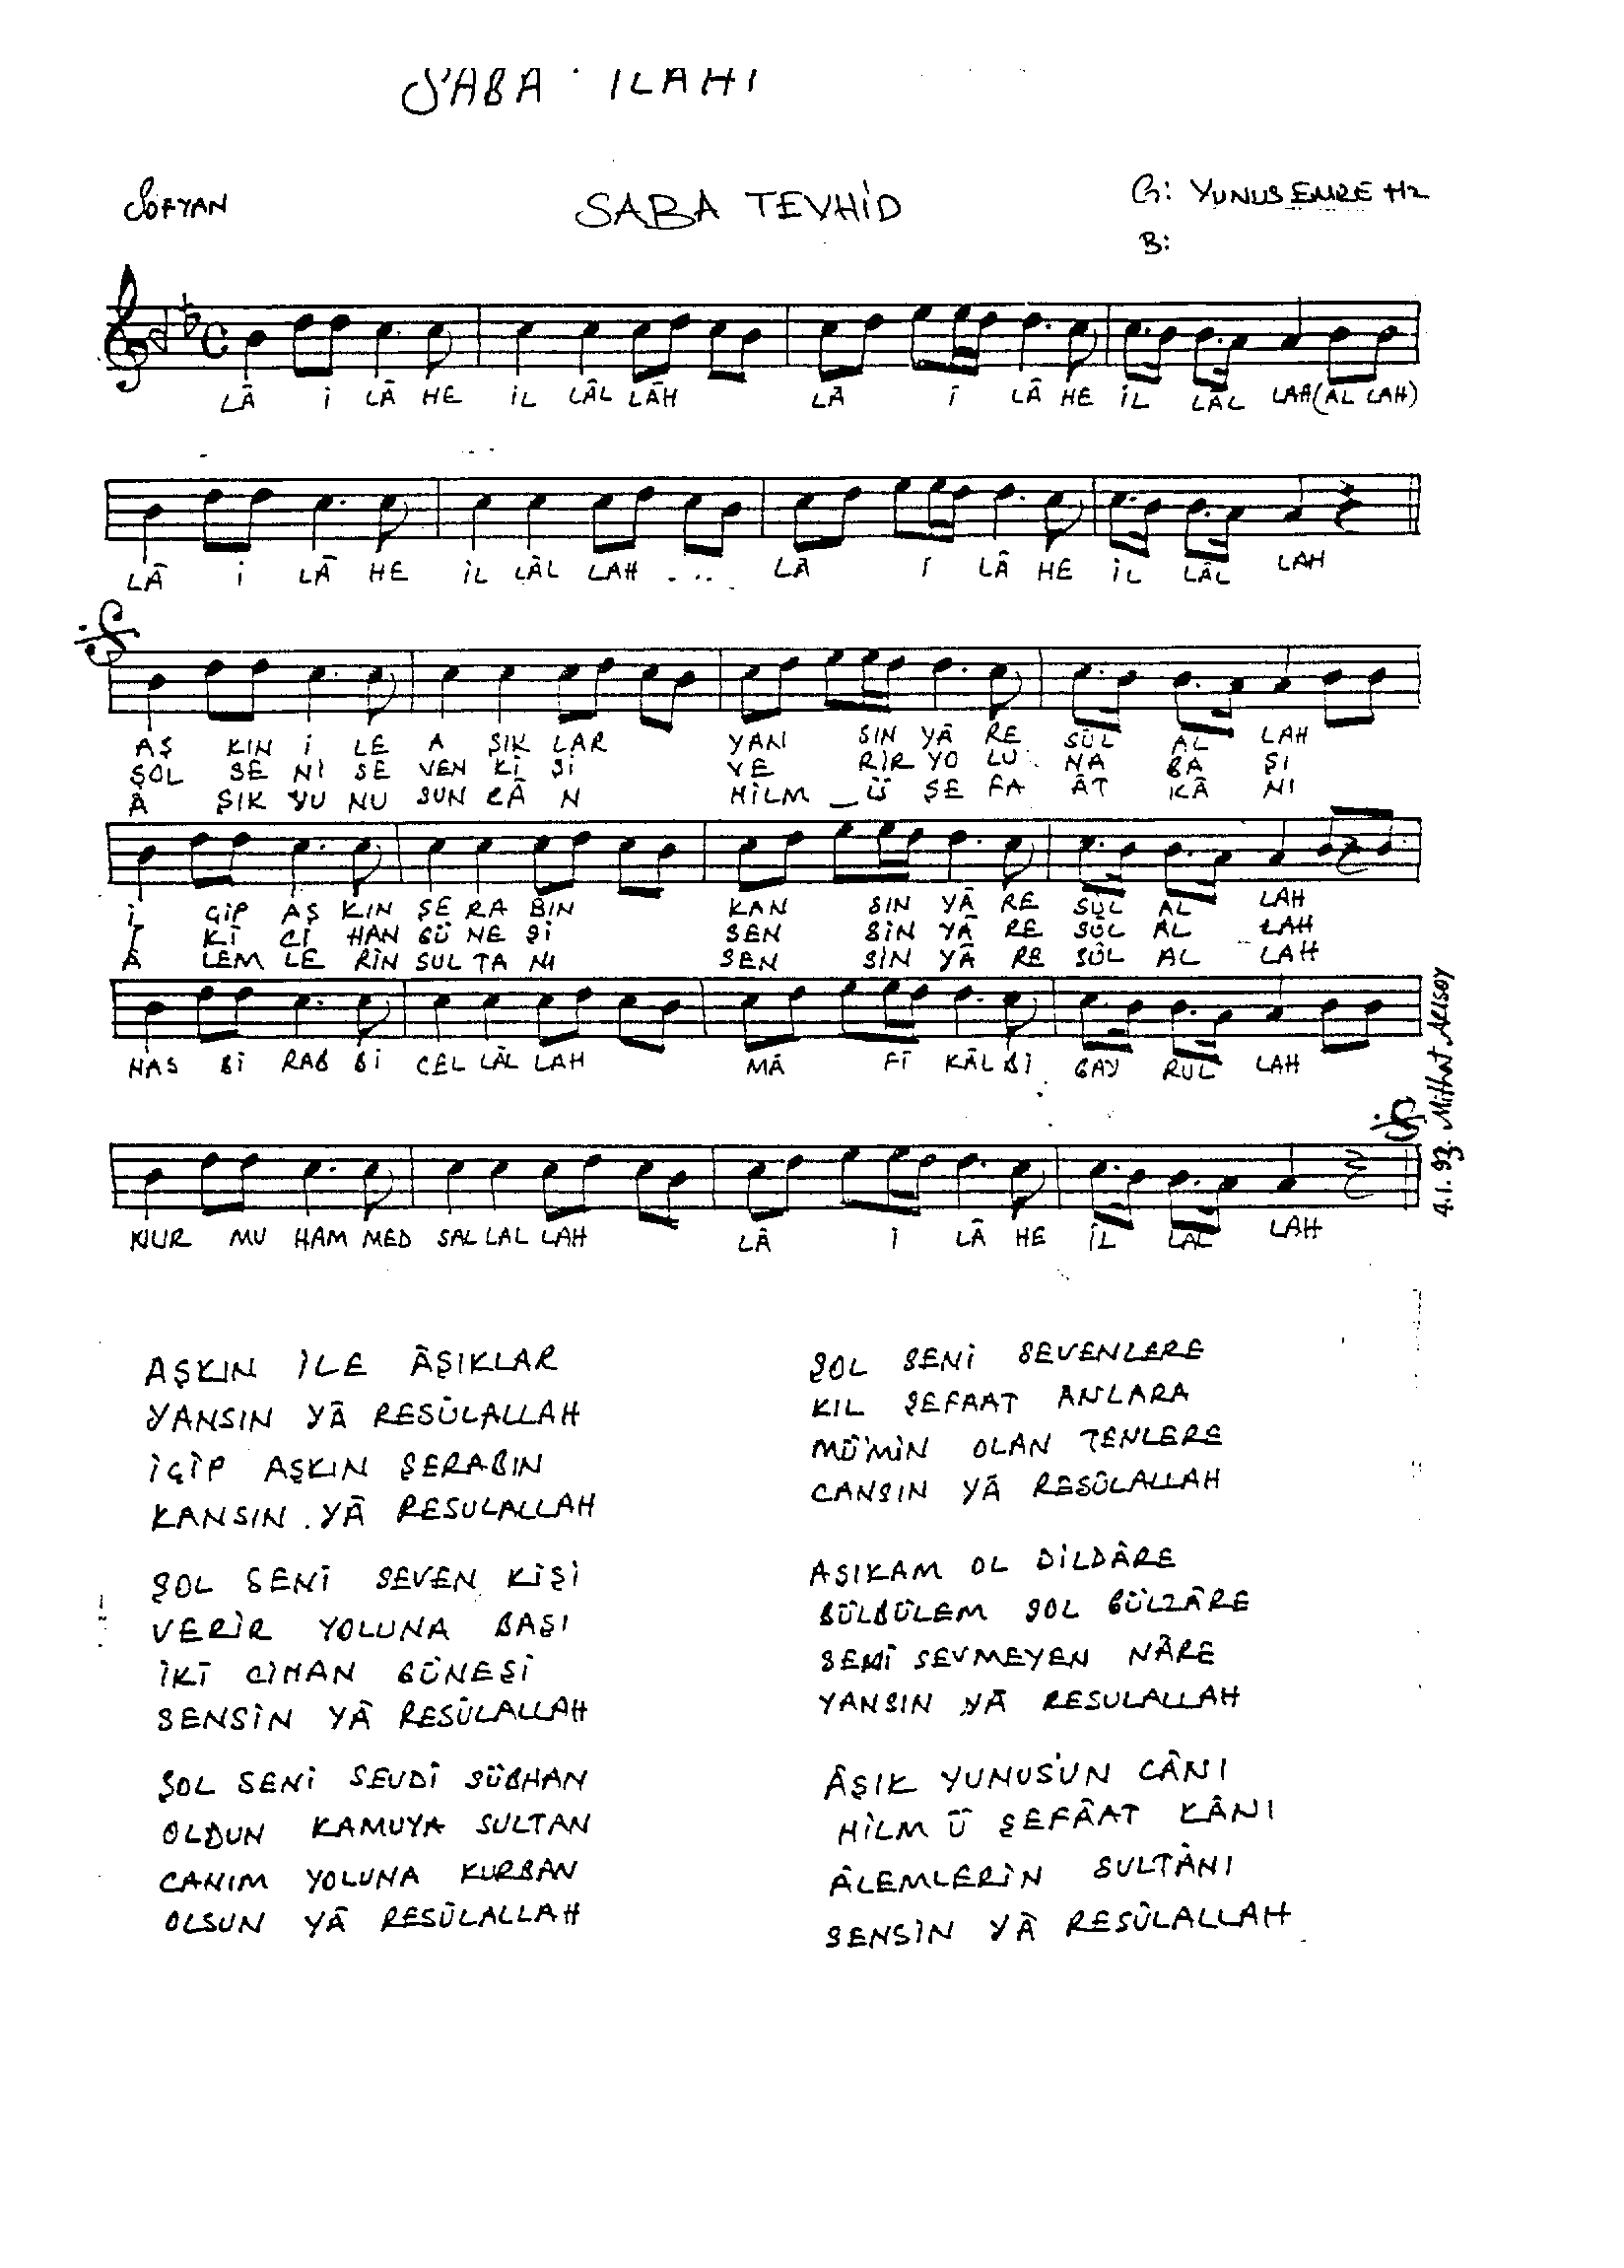 SABA İLAHİ
SOFYAN
SABA TEVHİD
G: YUNUS EMRE Hz
B:
LÂ İ LÂ HE İL LÂL LÂH LÂ İ LÂ HE İL LÂL LAH (AL LAH)
LÂ İ LÂ HE İL LÂL LAH . . . LÂ İ LÂ HE İL LÂL LAH
AŞ KIN İ LE A ŞIK LAR YAN SIN YÂ RE SÛL AL LAH
ŞOL SE Nİ SE VEN Kİ Şİ VE RİR YO LU NA BA ŞI
Â ŞIK YU NU SUN CÂ N HİLM _ Ü ŞE FA ÂT KÂ NI
İ ÇİP AŞ KIN ŞE RA BIN KAN SIN YÂ RE SÛL AL LAH
İ Kİ Cİ HAN GÜ NE Şİ SEN SİN YÂ RE SÛL AL LAH
Â LEM LE RİN SUL TA NI SEN SİN YÂ RE SÛL AL LAH
HAS Bİ RAB Bİ CEL LÂL LAH MÂ Fİ KÂL Bİ GAY RUL LAH
NUR MU HAM MED SAL LAL LAH LÂ İ LÂ HE İL LAL LAH
4.1.93. Mithat Arısoy
AŞKIN İLE ÂŞIKLAR
YANSIN YÂ RESÛLALLAH
İÇİP AŞKIN ŞERABIN
KANSIN YÂ RESULALLAH
ŞOL SENİ SEVEN KİŞİ
VERİR YOLUNA BAŞI
İKİ CİHAN GÜNEŞİ
SENSİN YÂ RESÛLALLAH
ŞOL SENİ SEVDİ SÜBHAN
OLDUN KAMUYA SULTAN
CANIM YOLUNA KURBAN
OLSUN YÂ RESÛLALLAH
ŞOL SENİ SEVENLERE
KIL ŞEFAAT ANLARA
MÜ'MİN OLAN TENLERE
CANSIN YÂ RESÛLALLAH
AŞIKAM OL DİLDÂRE
BÜLBÜLEM ŞOL GÜLZÂRE
SENİ SEVMEYEN NÂRE
YANSIN YÂ RESULALLAH
ÂŞIK YUNUS'UN CÂNI
HİLM Ü ŞEFÂAT KÂNI
ÂLEMLERİN SULTÂNI
SENSİN YÂ RESÛLALLAH